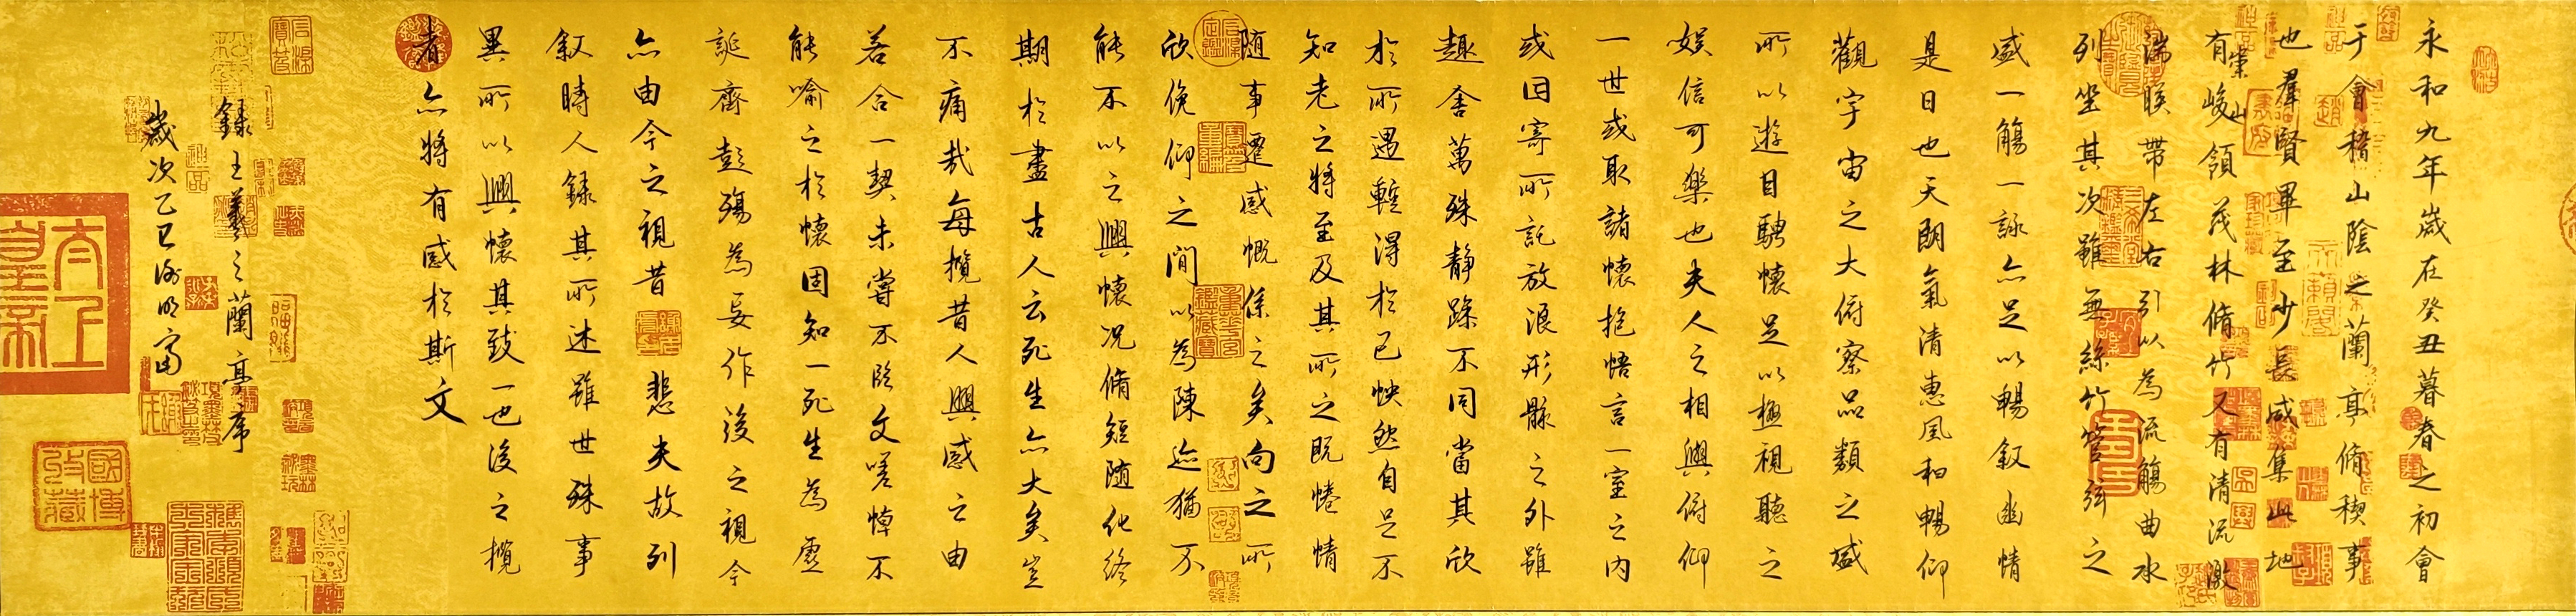 永和九年歲在癸丑暮春之初會
于會稽山陰之蘭亭脩稧事
也羣賢畢至少長咸集此地
有崇山峻領茂林脩竹又有清流激
湍暎帶左右引以為流觴曲水
列坐其次雖無絲竹管弦之
盛一觴一詠亦足以暢敘幽情
是日也天朗氣清惠風和暢仰
觀宇宙之大俯察品類之盛
所以遊目騁懷足以極視聽之
娛信可樂也夫人之相與俯仰
一世或取諸懷抱悟言一室之內
或因寄所託放浪形骸之外雖
趣舍萬殊靜躁不同當其欣
於所遇暫得於己怏然自足不
知老之將至及其所之既惓情
随事遷感慨係之矣向之所
欣俛仰之閒以為陳迹猶不
能不以之興懷況脩短随化終
期於盡古人云死生亦大矣豈
不痛哉每攬昔人興感之由
若合一契未嘗不臨文嗟悼不
能喻之於懷固知一死生為虛
誕齊彭殤為妄作後之視今
亦由今之視昔悲夫故列
敘時人錄其所述雖世殊事
異所以興懷其致一也後之攬
者亦將有感於斯文
錄王羲之蘭亭序
歲次乙巳明富
太上皇帝
國博攷藏